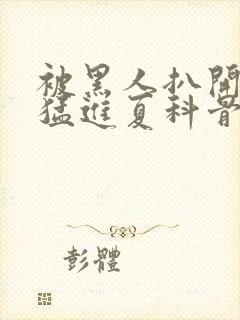 被黑人扒開
猛進夏科普
彭體